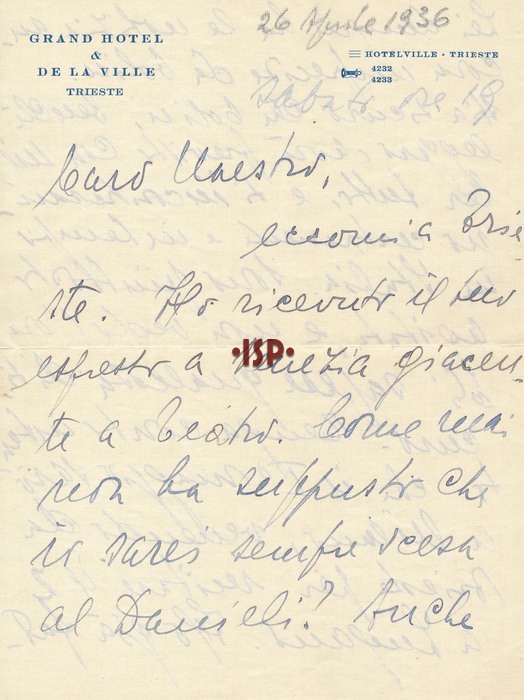 26 Aprile 1936
GRAND HOTEL
&
DE LA VILLE
TRIESTE
HOTELVILLE - TRIESTE
4232
4233
Sabato ore 19
Caro Maestro,
eccomi a Trie
ste. Ho ricevuto il suo
espresso a Venezia giacen-
te a teatro. Come mai
non ha supposto che
io sarei sempre scesa
al Danieli? Anche
·ISP·